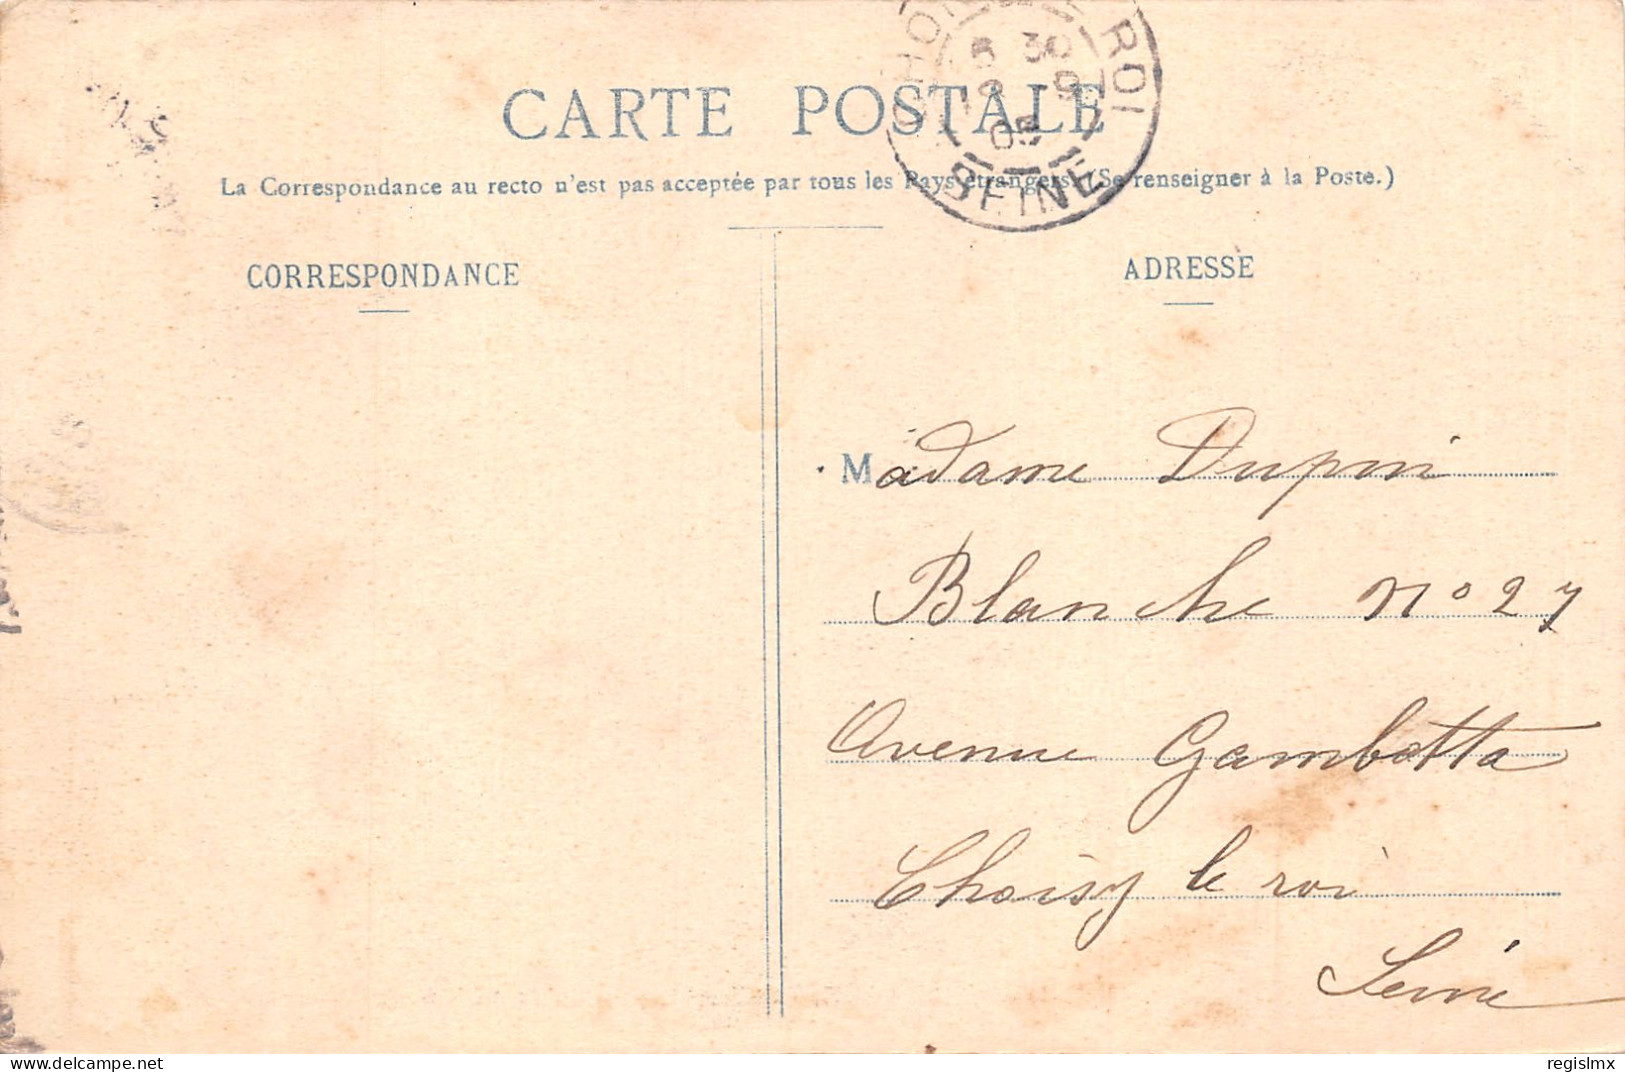 ROI
8 30
05
SEINE
CARTE POSTALE
La Correspondance au recto n'est pas acceptée par tous les Pays étrangers. (Se renseigner à la Poste.)
CORRESPONDANCE
ADRESSE
Madame Dupin
Blanche No 27
Avenue Gambetta
Choisy le roi
Seine
delcampe.net
regislmx